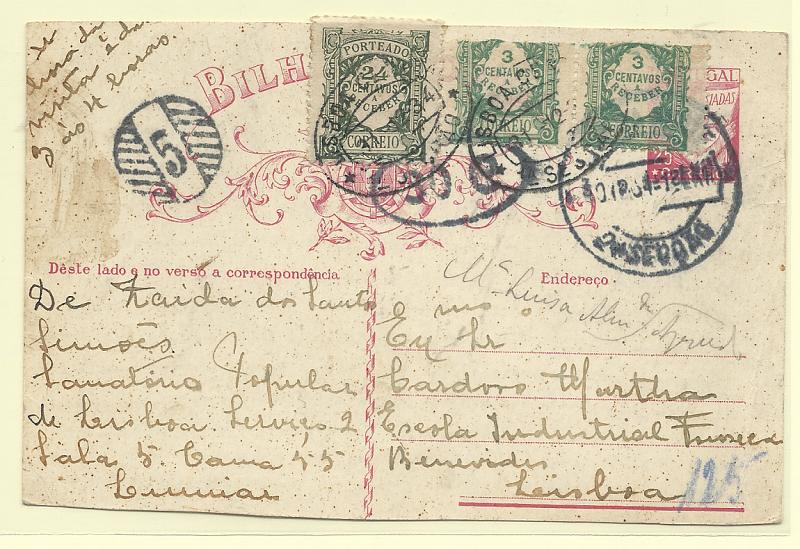 visita 2 da
3 ás 4 horas.
BILH
5
PORTEADO
24
CENTAVOS
A
RECEBER
CORREIO
3
CENTAVOS
A
RECEBER
CORREIO
3
CENTAVOS
A
RECEBER
CORREIO
GAL
LISBOA
2ªSECÇÃO
Déste lado e no verso a correspondência
Endereço
Mª Luisa
De Zaida dos Santos
Simões
Sanatório Popular
de Lisboa Serviço 2
Sala 5 Cama 45
Lumiar
Exmo
Sr
Cardoso Martha
Escola Industrial Fonseca
Benevides
Lisboa
125